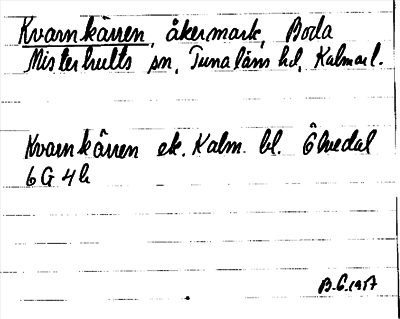 Kvarnkärren, åkermark, Boda
Misterhults sn, Tunaläns hd, Kalmar l.
Kvarnkärren ek. Kalm. bl. Ölvedal
6 G 4 h
B.G. 1957